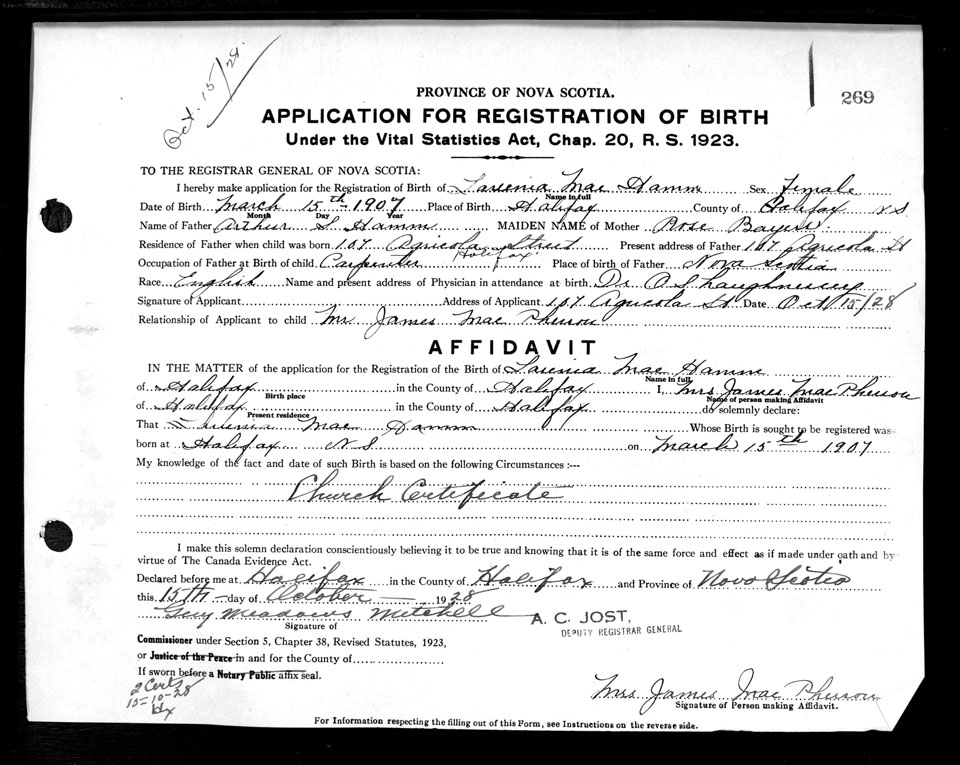 Oct. 15/28.
269
PROVINCE OF NOVA SCOTIA.
APPLICATION FOR REGISTRATION OF BIRTH
Under the Vital Statistics Act, Chap. 20, R. S. 1923.
TO THE REGISTRAR GENERAL OF NOVA SCOTIA:
I hereby make application for the Registration of Birth of Mae Hamm Sex Female
Name in full
Date of Birth March 15th 1907 Place of Birth Halifax County of Halifax N S
Month Day Year
Name of Father Arthur S Hamm MAIDEN NAME of Mother Rose
Residence of Father when child was born 107 Agricola Street Halifax Present address of Father 107 Agricola St
Occupation of Father at Birth of child Carpenter Place of birth of Father Nova Scotia
Race English Name and present address of Physician in attendance at birth Dr
Signature of Applicant Address of Applicant 107 Agricola St Date Oct 15/28
Relationship of Applicant to child Mrs James Mac Pherson
AFFIDAVIT
IN THE MATTER of the application for the Registration of the Birth of Mae Hamm
Name in full
of Halifax in the County of Halifax I, Mrs James Mac Pherson
Birth place Name of person making Affidavit
of Halifax in the County of Halifax do solemnly declare:
Present residence
That Mae Hamm Whose Birth is sought to be registered was
born at Halifax N S on March 15th 1907
My knowledge of the fact and date of such Birth is based on the following Circumstances :—
Church Certificate
I make this solemn declaration conscientiously believing it to be true and knowing that it is of the same force and effect as if made under oath and by
virtue of The Canada Evidence Act.
Declared before me at Halifax in the County of Halifax and Province of Nova Scotia
this 15th day of October 1928
Guy Meadows Mitchell A. C. JOST,
DEPUTY REGISTRAR GENERAL
Signature of
Commissioner under Section 5, Chapter 38, Revised Statutes, 1923,
or Justice of the Peace in and for the County of
If sworn before a Notary Public affix seal.
2 Certs
15-10-28
Mrs James Mac Pherson
Signature of Person making Affidavit.
For Information respecting the filling out of this Form, see Instructions on the reverse side.